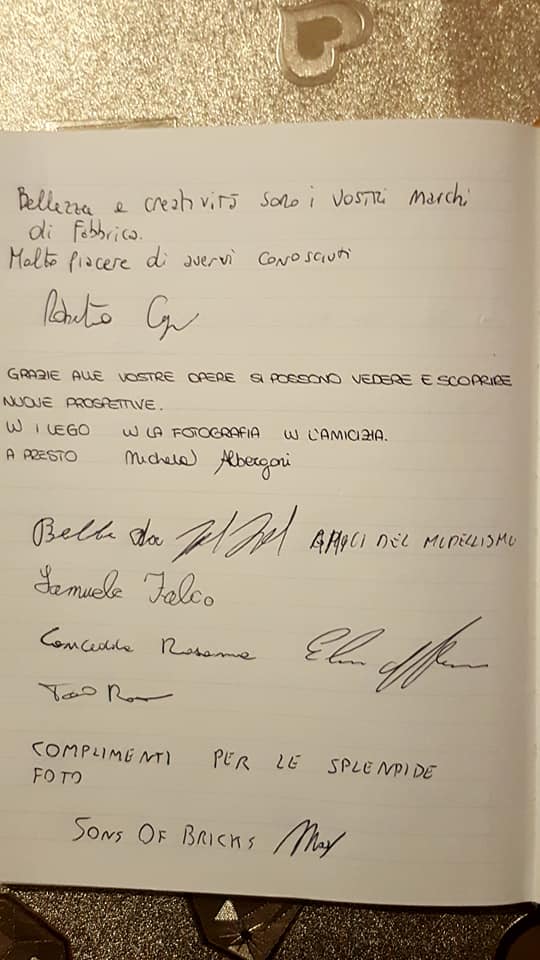 Bellezza e creatività sono i vostri marchi
di Fabbrica.
Molto piacere di avervi conosciuti
Roberto
GRAZIE ALLE VOSTRE OPERE SI POSSONO VEDERE E SCOPRIRE
NUOVE PROSPETTIVE.
W I LEGO W LA FOTOGRAFIA W L'AMICIZIA.
A PRESTO Michela Albergoni
Bella da AMICI DEL MODELLISMO
Samuele Falco
Rosanna
COMPLIMENTI PER LE SPLENDIDE
FOTO
SONS OF BRICKS Max